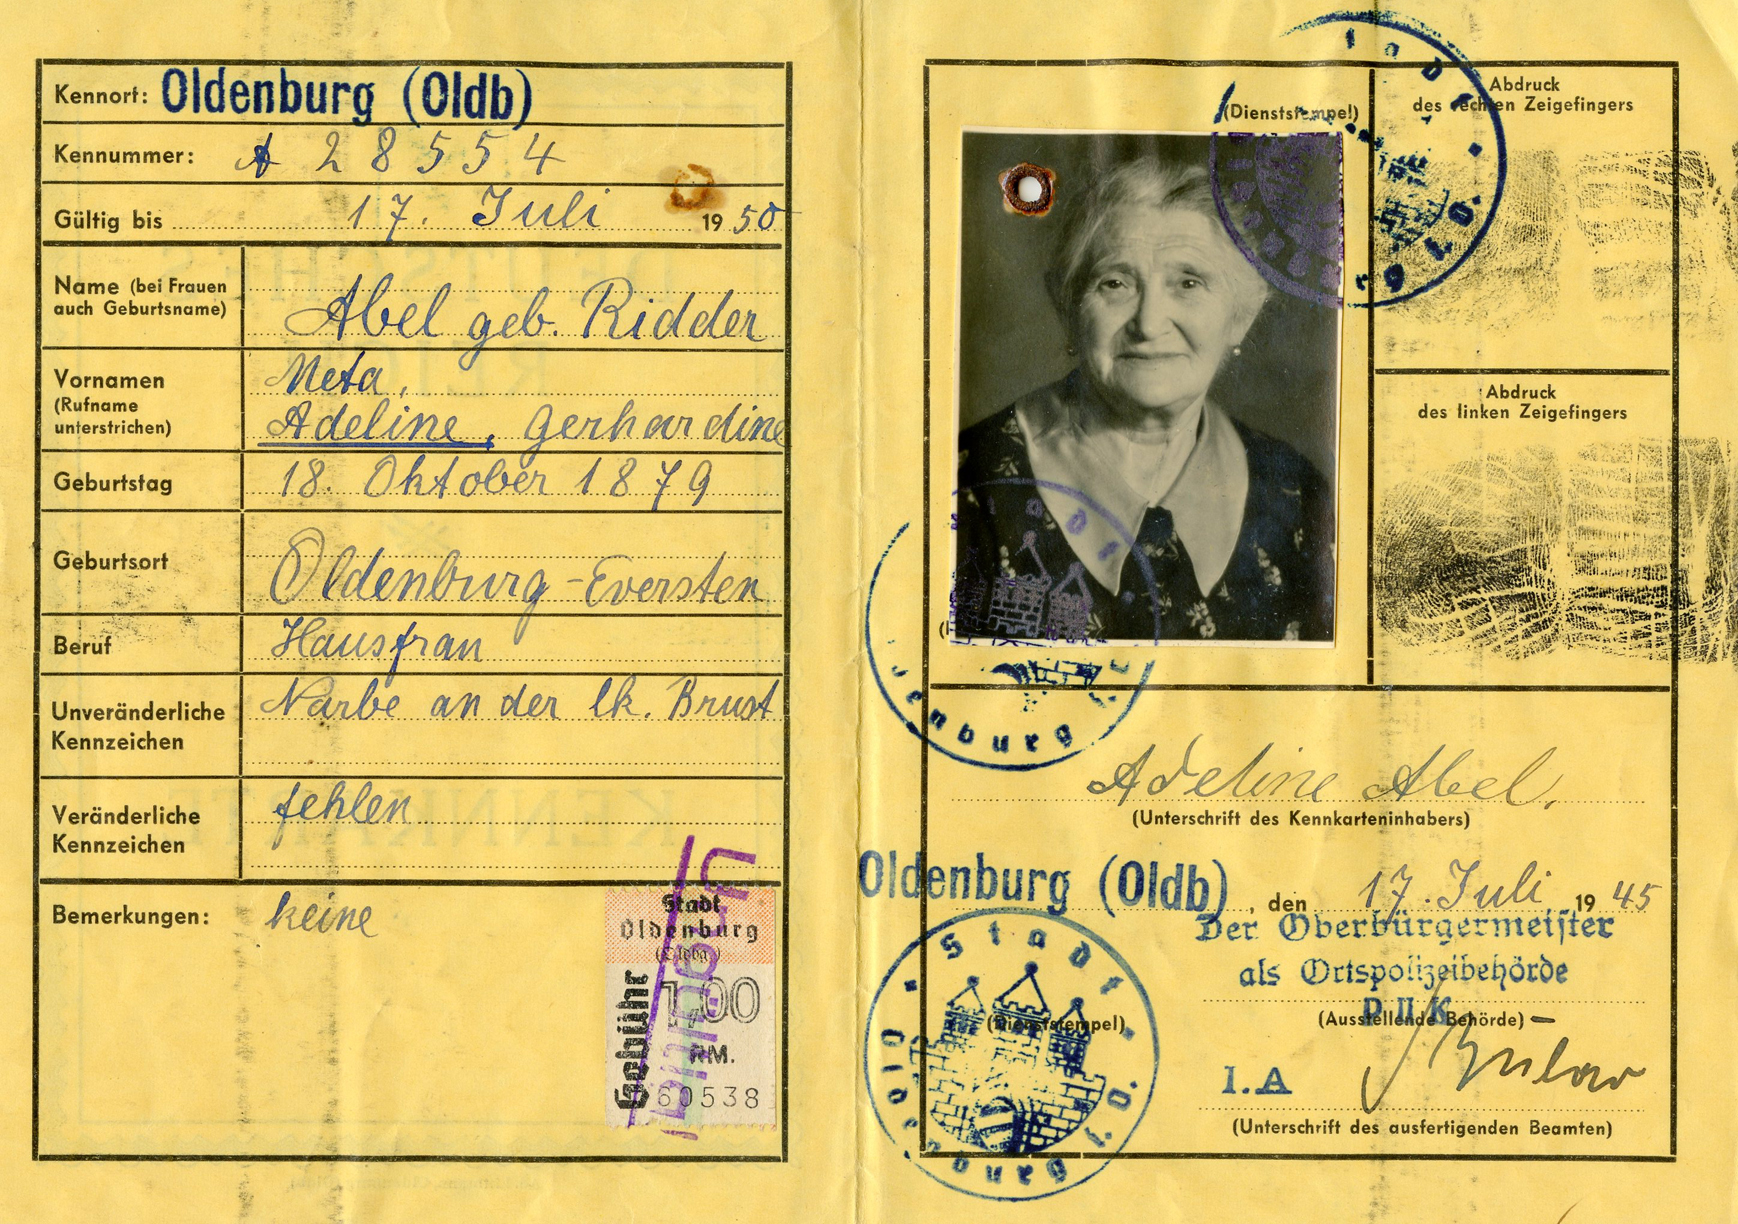 Kennort: Oldenburg (Oldb)
Kennummer: A 28554
Gültig bis 17. Juli 1950
Name (bei Frauen
auch Geburtsname)
Abel geb. Ridder
Vornamen
(Rufname
unterstrichen)
Meta,
Adeline, Gerhardine
Geburtstag 18. Oktober 1879
Geburtsort Oldenburg-Eversten
Beruf Hausfrau
Unveränderliche
Kennzeichen
Narbe an der lk. Brust
Veränderliche
Kennzeichen
fehlen
Bemerkungen: keine
Stadt
Oldenburg
Gebühr
1,00
RM.
60538
(Dienststempel)
Abdruck
des rechten Zeigefingers
Abdruck
des linken Zeigefingers
Adeline Abel.
(Unterschrift des Kennkarteninhabers)
Oldenburg (Oldb), den 17. Juli 1945
Der Oberbürgermeister
als Ortspolizeibehörde
(Ausstellende Behörde)
(Dienststempel)
Stadt Oldenburg i. O.
I.A
(Unterschrift des ausfertigenden Beamten)